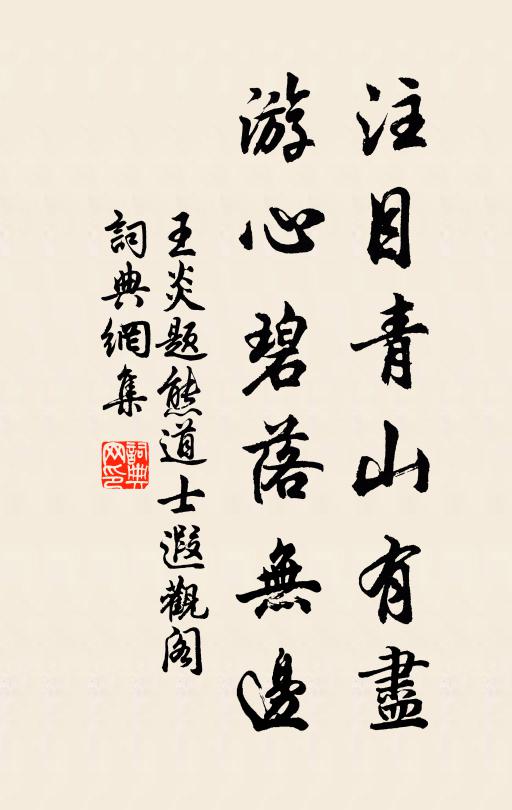 注目青山有盡
游心碧落無邊
王炎題熊道士遐觀阁
詞典網集
詞典
网印